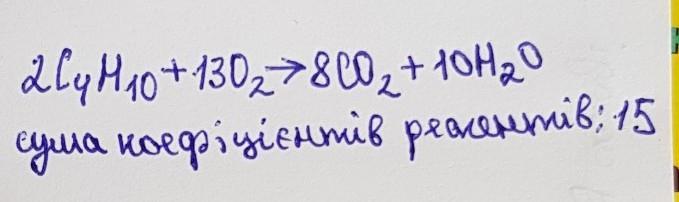 2C₄H₁₀+13O₂→8CO₂+10H₂O
сума коефіцієнтів реагентів: 15